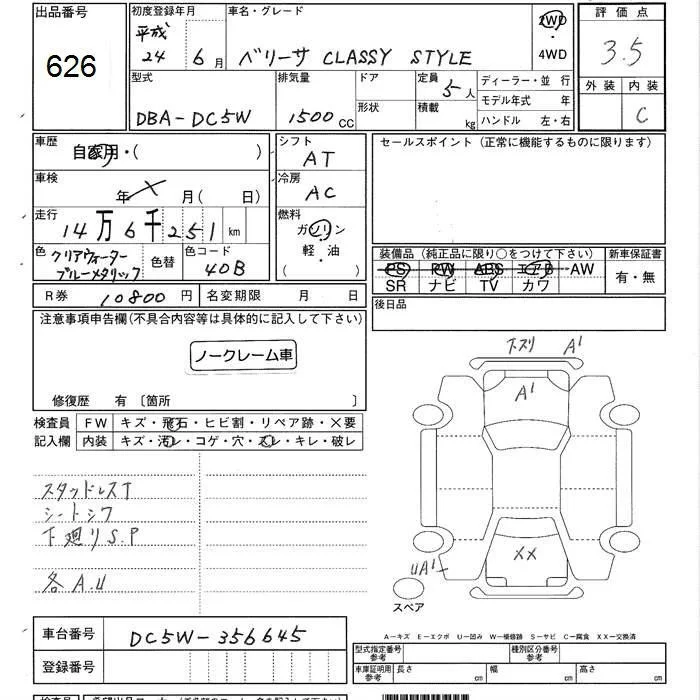 出品番号 初度登録年月 車名・グレード 2WD 評価点
626 平成 24 6月 ベリーサ CLASSY STYLE 4WD 3.5
型式 排気量 ドア 定員 5人 ディーラー・並行 外装 内装
DBA-DC5W 1500cc 形状 積載 kg モデル年式 年 C
ハンドル 左・右
車歴 自家用・( ) シフト AT セールスポイント(正常に機能するものに限ります)
車検 年 月(日) 冷房 AC
走行 14万6千251km 燃料 ガソリン
軽・油
( ・ )
色 クリアウォーターブルーメタリック 色替 色コード 40B
装備品(純正品に限り○をつけて下さい) 新車保証書
PS PW ABS エアB AW 有・無
SR ナビ TV カワ
R券 10800円 名変期限 月 日 後日品
注意事項申告欄(不具合内容等は具体的に記入して下さい)
ノークレーム車
修復歴 有〔箇所 〕
検査員 FW キズ・飛石・ヒビ割・リペア跡・×要
記入欄 内装 キズ・汚レ・コゲ・穴・スレ・キレ・破レ
下スリ A1
A1
スタッドレスT
シートシワ
下廻りS.P
各A.U
XX
UA1
スペア
車台番号 DC5W-356645
A-キズ E-エクボ U-凹み W-補修跡 S-サビ C-腐食 XX-交換済
登録番号 型式指定番号 参考 種別区分番号 参考
車庫証明用 参考 長さ cm 幅 cm 高さ cm